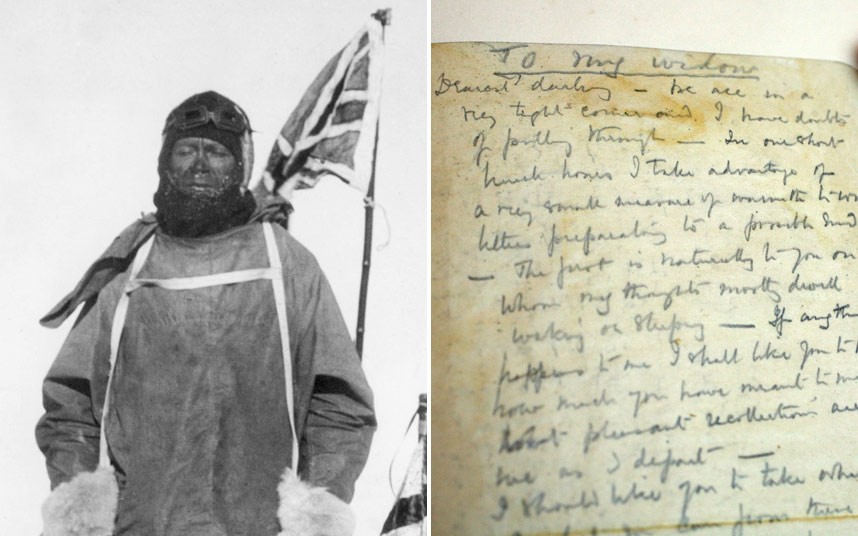 To my widow
Dearest darling – we are in a
very tight corner and I have doubts
of pulling through – In our short
lunch hours I take advantage of
a very small measure of warmth to
letters preparatory to a possible end
– The first is naturally to you on
whom my thoughts mostly dwell
waking or sleeping – If anything
happens to me I shall like you to
how much you have meant to me
pleasant recollections are
me as I depart –
I should like you to take
from these